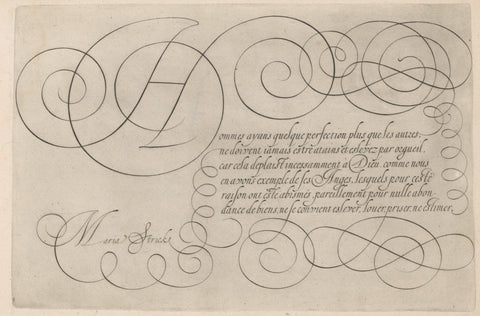 Hommes ayans quelque perfection plus que les autres,
ne doivent iamais estre atains et eslevez par orgueil,
car cela deplaist incessamment a Dieu, comme nous
en avons exemple de ses Anges, lesquels pour ceste
raison ont esté abismés, pareillement pour nulle abon
dance de biens, ne se convient eslever, louer, priser, ne estimer.
Maria Strick